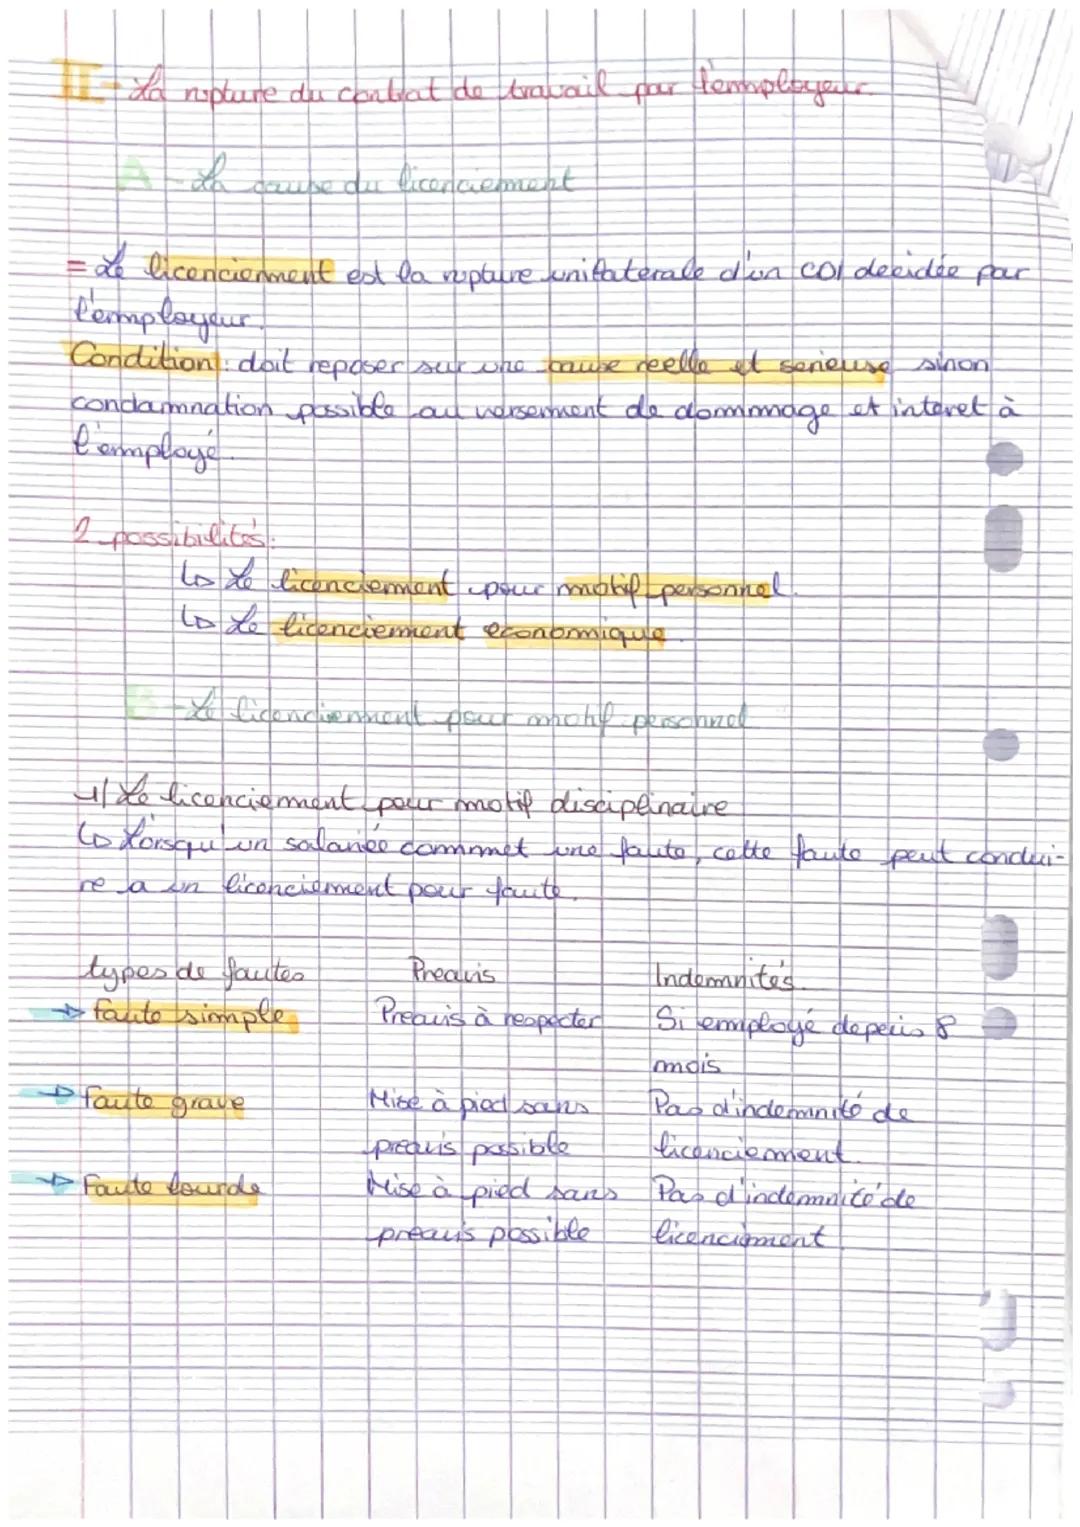 II - La rupture du contrat de travail par l'employeur.
A - La cause du licenciement
= Le licenciement est la rupture unilaterale d'un CDI decidée par
l'employeur.
Condition : doit reposer sur une cause reelle et serieuse sinon
condamnation possible au versement de dommage et interet à
l'employé.
2 possibilités :
↳ Le licenciement pour motif personnel.
↳ Le licenciement economique.
B - Le licenciement pour motif personnel
1/ Le licenciement pour motif disciplinaire
↳ Lorsqu'un salariée commmet une faute, cette faute peut condui-
re a un licenciement pour faute.
types de fautes Preavis Indemnités.
→ Faute simple Preavis à respecter Si employé depuis 8
mois
→ Faute grave Mise à pied sans Pas d'indemnité de
preavis possible licenciement.
→ Faute lourde Mise à pied sans Pas d'indemnité de
preavis possible licenciement